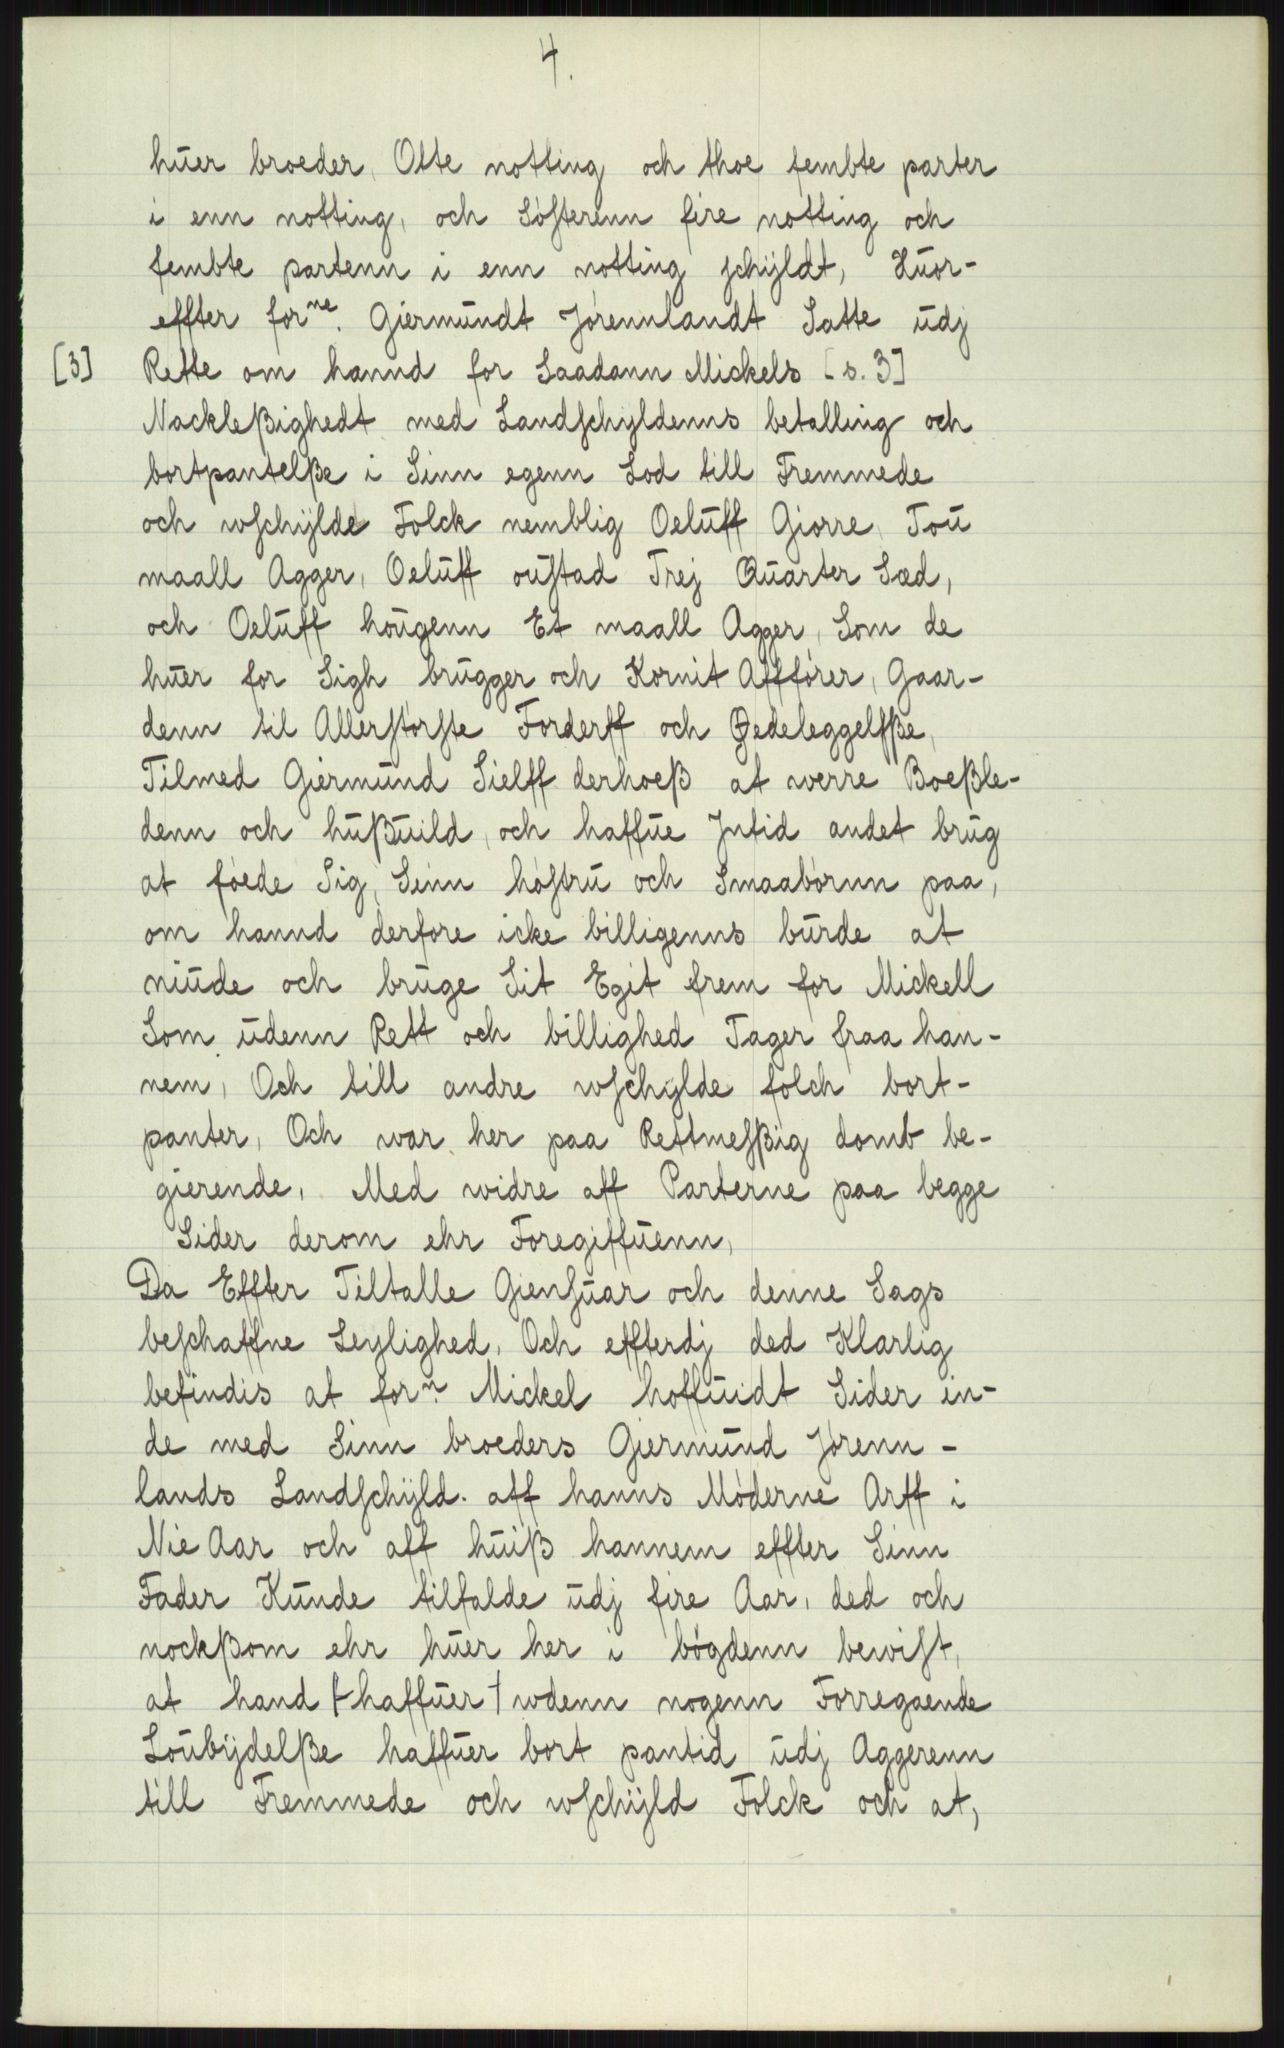 4.
huer broeder, Otte notting och thoe fembte parter
i enn notting, och Søsterenn fire notting och
fembte partenn i enn notting schÿldt, Huor-
effter forne. Giermundt Jørennlandt Satte udj
[3] Rette om hannd for Saadann Mickels [s. 3]
Nackleßighedt med Landschyldenns betalling och
bortpantelße i Sinn egenn Lod till Fremmede
och wschÿlde Folck nemblig Oeluff Giorre, Tou
maall Agger, Oeluff oustad Trej Quarter Sæd,
och Oeluff hougenn Et maall Agger, Som de
huer for Sigh brugger och Kornit Afffører, Gaar-
denn til Allerstørste Forderff och Ødeleggelsße,
Tilmed Giermund Sielff derhoeß at werre Boeßle-
denn och hußuild, och haffue Jntid andet brug
at føede Sig, Sinn høstru och Smaabørnn paa,
om hannd derfore icke billigenns burde at
niude och bruge Sit Egit frem for Mickell
Som udenn Rett och billighed Tager fraa han-
nem, Och till andre wschylde folch bort-
panter, Och war her paa Rettmesßig domb be-
gierende, Med widre aff Parterne paa begge
Sider derom ehr Foregiffuenn,
Da Effter Tiltalle Giensuar och denne Sags
beschaffne Leylighed, Och effterdj ded Klarlig
befindis at forn. Mickel hoffuidt Sider in-
de med Sinn broeders Giermund Jørenn-
lands Landschÿld. aff hanns Møderne Arff i
Nie Aar och aff huiß hannem effter Sinn
Fader Kunde tilfalde udj fire Aar, ded och
nockßom ehr huer her i bøgdenn bewist,
at hand [-haffuer] wdenn nogenn Forregaende
Loubÿdelße haffuer bort pantid udj Aggerenn
till Fremmede och wschÿld Folck och at,